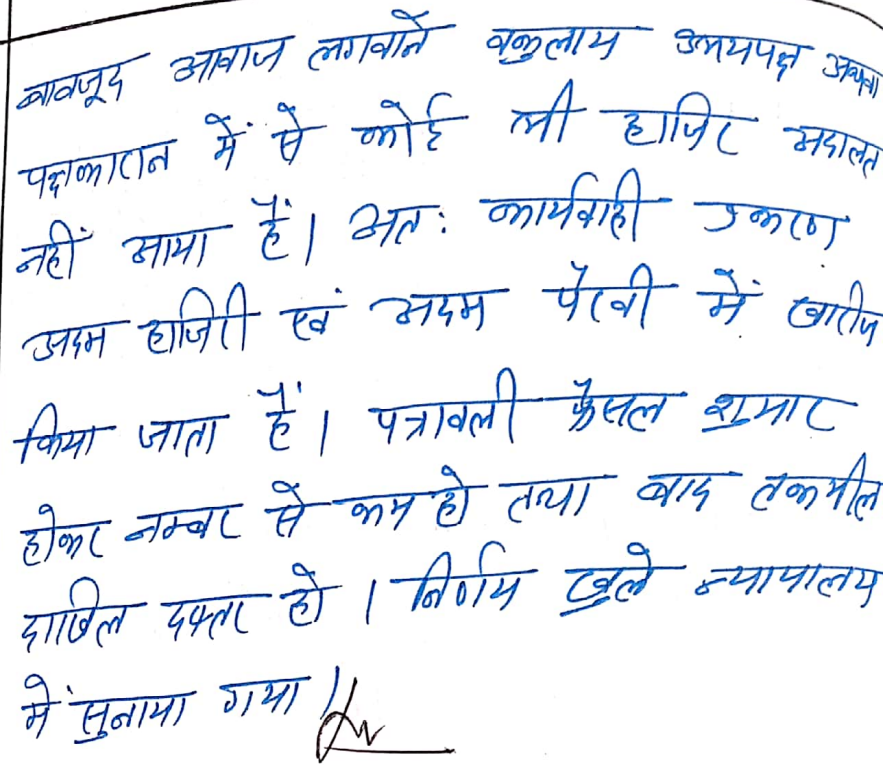 बावजूद आवाज लगवाने वकुलाय उभयपक्ष अथवा
पक्षकारान में से कोई भी हाजिर अदालत
नहीं आया हैं। अतः कार्यवाही प्रकरण
अदम हाजिरी एवं अदम पैरवी में खारीज
किया जाता हैं। पत्रावली फैसल शुमार
होकर नम्बर से कम हो तथा बाद तकमील
दाखिल दफ्तर हो। निर्णय खुले न्यायालय
में सुनाया गया।